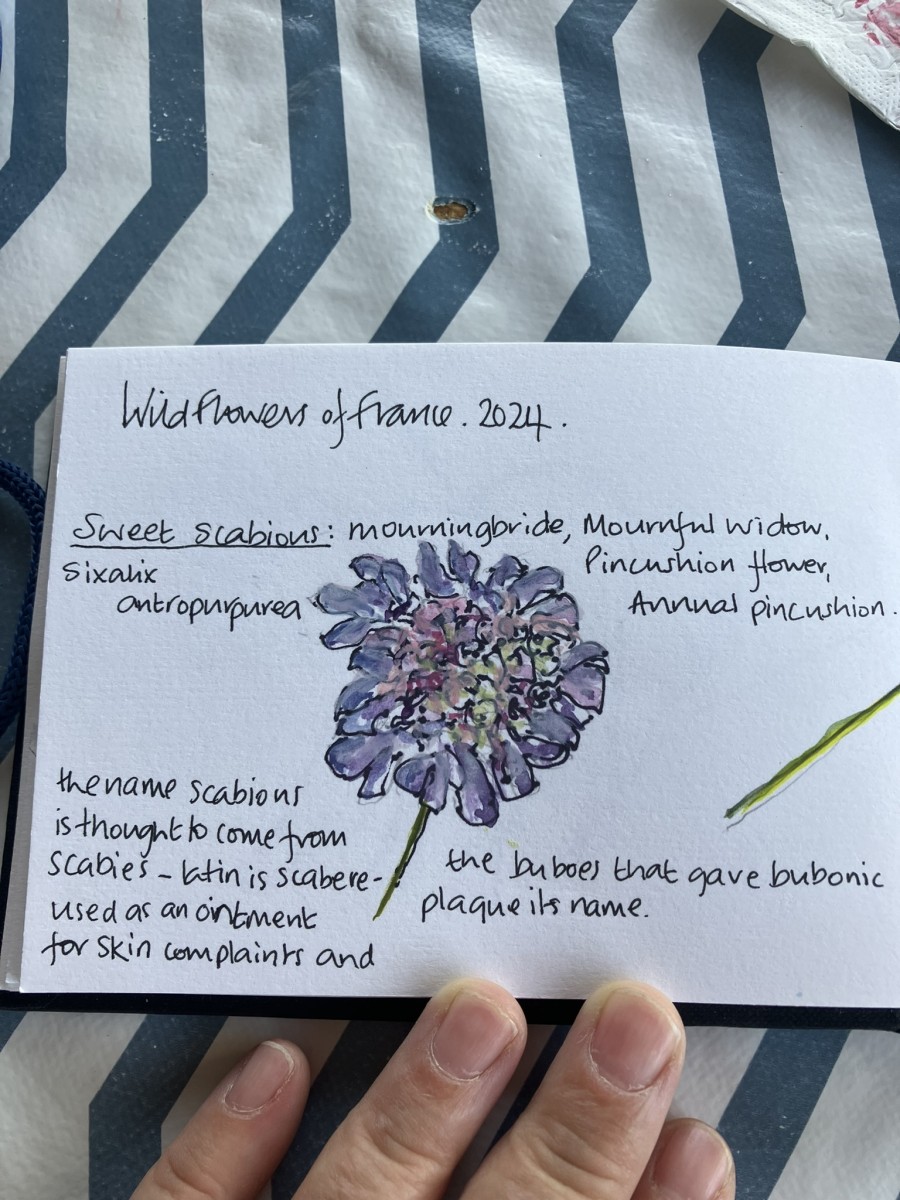 Wildflowers of France. 2024.
Sweet scabious: mourningbride, Mournful widow,
Sixalix
antropurpurea
Pincushion flower,
Annual pincushion.
the name scabious
is thought to come from
scabies - latin is scabere -
used as an ointment
for skin complaints and
the buboes that gave bubonic
plaque its name.